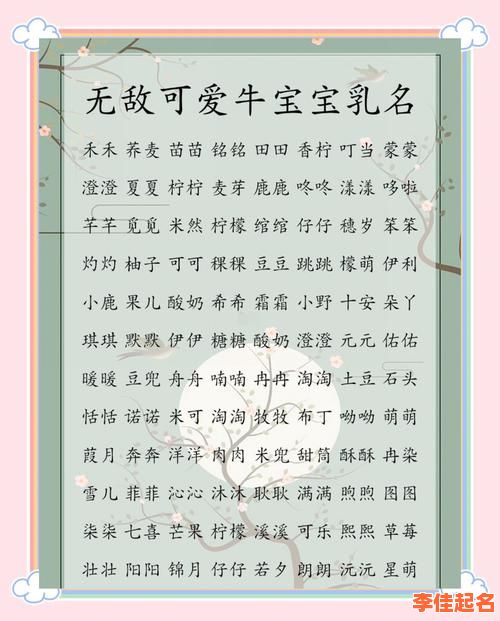 无敌可爱牛宝宝乳名
禾禾 荞麦 苗苗 铭铭 田田 香柠 叮当 蒙蒙
澄澄 夏夏 柠柠 麦芽 鹿鹿 咚咚 漾漾 哆啦
芊芊 觅觅 米然 柠檬 绾绾 仔仔 穗岁 笨笨
灼灼 柚子 可可 稞稞 豆豆 跳跳 檬萌 伊利
小鹿 果儿 酸奶 希希 霜霜 小野 十安 朵丫
琪琪 默默 伊伊 糖糖 酸奶 澄澄 元元 佑佑
暖暖 豆兜 舟舟 喃喃 冉冉 淘淘 土豆 石头
恬恬 诺诺 米可 淘淘 牧牧 布丁 呦呦 萌萌
葭月 奔奔 洋洋 肉肉 米兜 甜筒 酥酥 冉染
雪儿 菲菲 沁沁 沐沐 耿耿 满满 煦煦 图图
柒柒 七喜 芒果 柠檬 溪溪 可乐 熙熙 草莓
壮壮 阳阳 锦月 仔仔 若夕 朗朗 沅沅 星萌
李佳起名